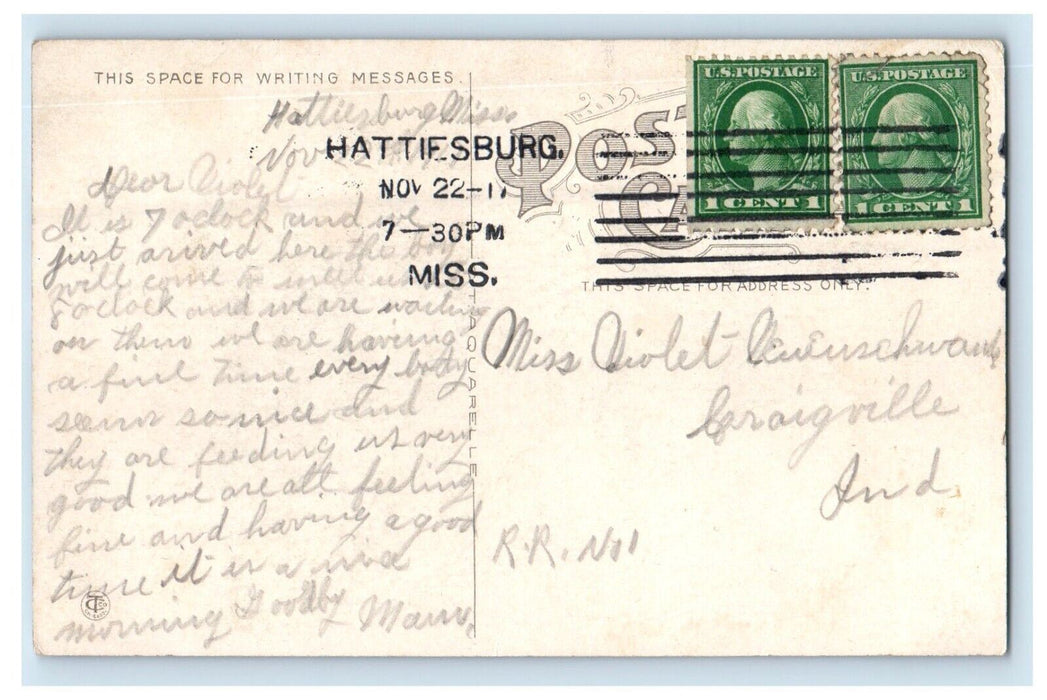 THIS SPACE FOR WRITING MESSAGES.
Hattiesburg Miss
Nov 22
Dear Violet
It is 7 oclock and we
just arived here the
will come to meet us
8 oclock and we are waiting
on them we are having
a fine time every body
seems so nice and
they are feeding us very
good we are all feeling
fine and having a good
time it is a
morning Goodby
HATTIESBURG.
NOV 22-1
7-30PM
MISS.
POST
CA
U.S. POSTAGE
1 CENT 1
U.S. POSTAGE
1 CENT 1
THIS SPACE FOR ADDRESS ONLY.
TAQUARELLE
Miss Violet
Craigville
Ind
R.R. No 1
CT